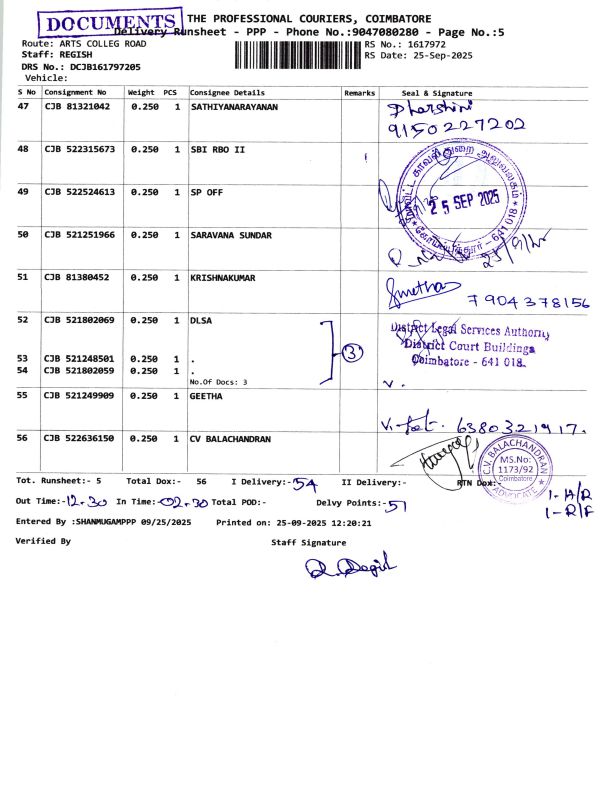 DOCUMENTS
THE PROFESSIONAL COURIERS, COIMBATORE
Delivery Runsheet - PPP - Phone No.:9047080280 - Page No.:5
Route: ARTS COLLEG ROAD
RS No.: 1617972
Staff: REGISH
RS Date: 25-Sep-2025
DRS No.: DCJB161797205
Vehicle:
S No Consignment No Weight PCS Consignee Details Remarks Seal & Signature
47 CJB 81321042 0.250 1 SATHIYANARAYANAN Dharshini
9150227202
48 CJB 522315673 0.250 1 SBI RBO II
49 CJB 522524613 0.250 1 SP OFF
25 SEP 2025
641 018
50 CJB 521251966 0.250 1 SARAVANA SUNDAR
51 CJB 81380452 0.250 1 KRISHNAKUMAR
7904378156
52 CJB 521802069 0.250 1 DLSA
District Legal Services Authority
District Court Buildings
Coimbatore - 641 018.
3
53 CJB 521248501 0.250 1 .
54 CJB 521802059 0.250 1 .
No.Of Docs: 3
V.
55 CJB 521249909 0.250 1 GEETHA
6380321917.
56 CJB 522636150 0.250 1 CV BALACHANDRAN
C.V. BALACHANDRAN
MS.No:
1173/92
Coimbatore
ADVOCATE
Tot. Runsheet:- 5 Total Dox:- 56 I Delivery:- 54 II Delivery:- RTN Dox:-
1- H/R
1- R/F
Out Time:-12.30 In Time:-02.30 Total POD:- Delvy Points:-51
Entered By :SHANMUGAMPPP 09/25/2025 Printed on: 25-09-2025 12:20:21
Verified By Staff Signature